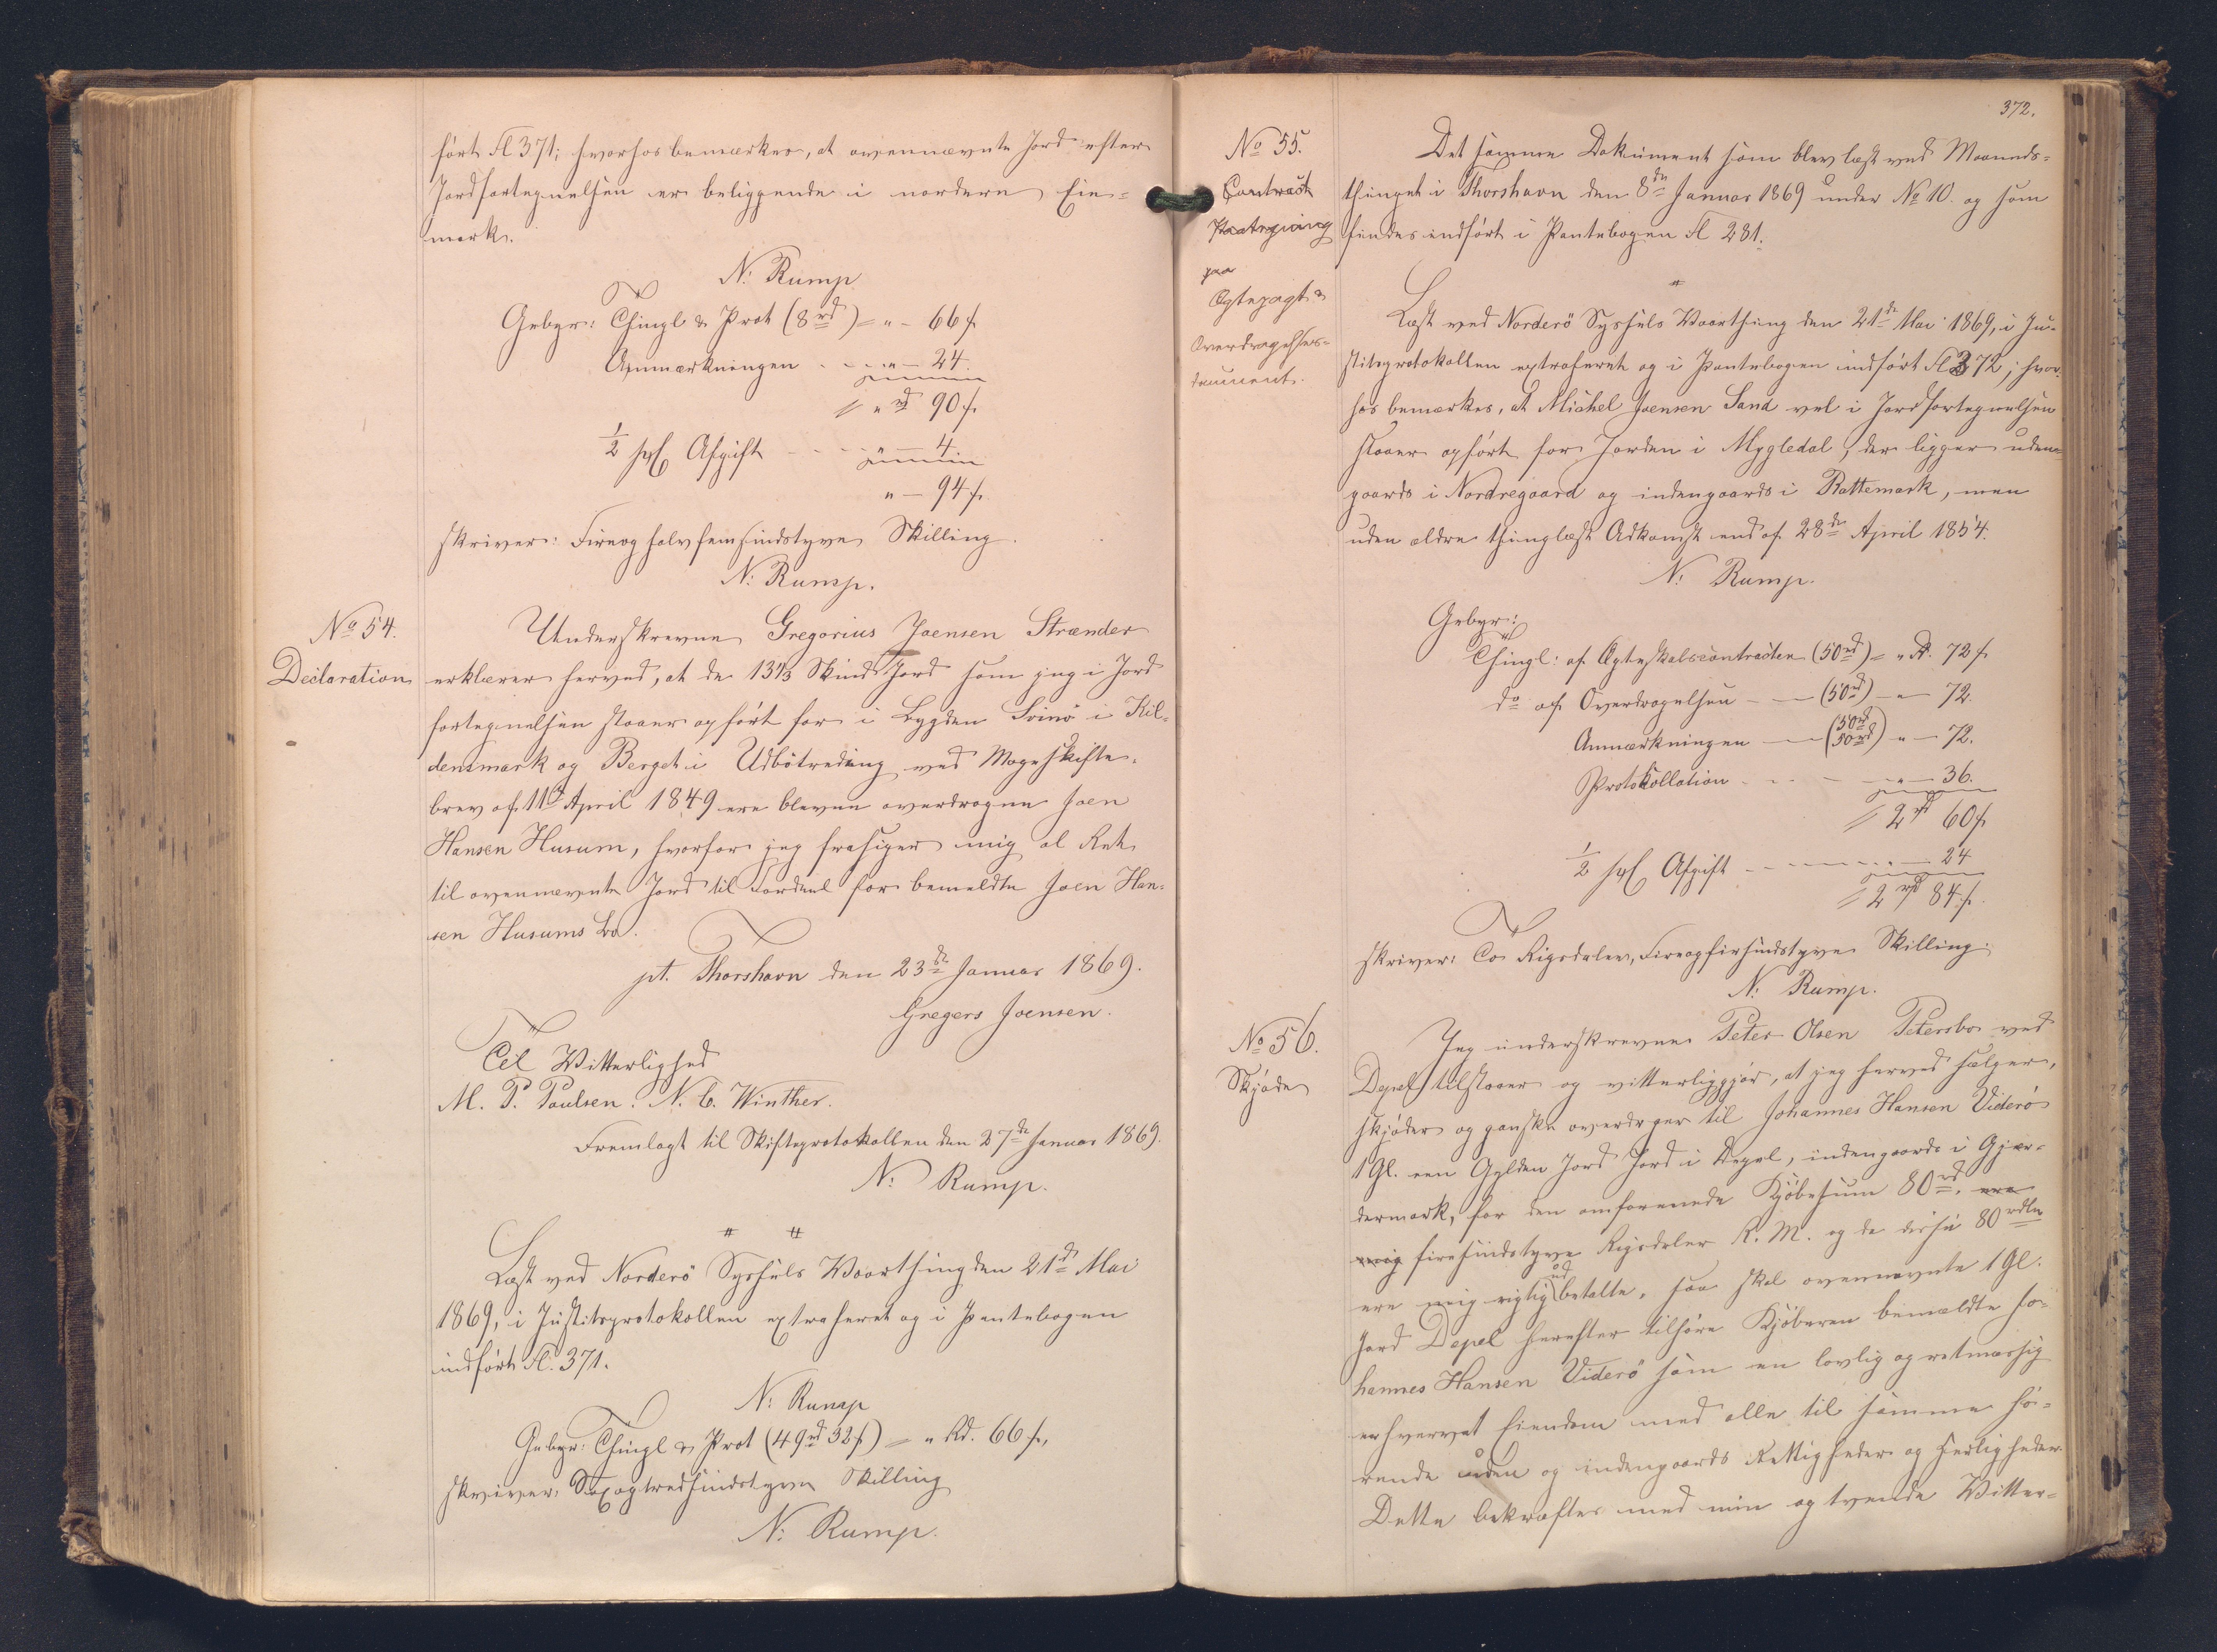 ført Fl 371; hvorhos bemærkes, at ovennævnte Jord efter
Jordfortegnelsen er beliggende i nordere Eie-
mark.
N. Rump
Gebyr: Thingl & Prot (8 rd) = " - 66 s
Anmærkningen . - . " - 24.
" rd 90 s.
1/2 pCt Afgift - - - " - 4.
" - 94 s.
skriver: Fireog halvfemsindstyve Skilling.
N. Rump.
No 54.
Declaration
Underskrevne Gregorius Joensen Strænder
erklærer herved, at de 13 1/3 Skind Jord som jeg i Jord
fortegnelsen staaer opført for i Bygden Svinø i Kil-
densmark og Berget i Udbötreding ved Mageskifte-
brev af 11te April 1849 ere blevne overdragne Joen
Hansen Husum, hvorfor jeg frasiger mig al Ret
til ovennævnte Jord til Fordeel for bemeldte Joen Han-
sen Husums Bo.
pt. Thorshavn den 23de Januar 1869.
Gregers Joensen.
Til Vitterlighed
M. P. Paulsen. N. C. Winther.
Fremlagt til Skifteprotokollen den 27de Januar 1869.
N. Rump.
Læst ved Norderö Syssels Vaarthing den 21de Mai
1869, i Justitsprotokollen extraheret og i Pantebogen
indført Fl. 371.
N. Rump
Gebyr: Thingl & Prot (49 rd 32 s) = " Rd. 66 s.,
skriver: Sexogtredsindstyve Skilling
N. Rump.
372.
No 55.
Contract
Paategning
paa
Ægtepagt &
Overdragelses-
document.
Det samme Dokument som blev læst ved Maaneds-
thinget i Thorshavn den 8de Januar 1869 under No 10. og som
findes indført i Pantebogen Fl 281.
Læst ved Norderö Syssels Vaarthing den 21de Mai 1869, i Ju-
stitsprotokollen extraheret og i Pantebogen indført Fl 372; hvor-
hos bemærkes, at Michel Joensen Sand vel i Jordfortegnelsen
staaer opført for Jorden i Mygledal, der ligger uden-
gaards i Nordregaard og indengaards i Rattemark, men
uden ældre thinglæst Adkomst end af 28de April 1854.
N. Rump.
Gebyr:
Thingl: af Ægteskabscontracten (50 rd) = " rd. 72 s
do af Overdragelsen - - (50 rd) - " - 72.
Anmærkningen - (50 rd 50 rd) " - 72.
Protokollation - - - " - 36.
2 rd 60 s
1/2 pCt Afgift - - - - " - 24
2 rd 84 s.
skriver: To Rigsdaler, Fireogfirsindstyve Skilling.
N. Rump.
No 56.
Skjøde
Jeg underskrevne Peter Olsen Petersbo ved
Depel tilstaaer og vitterliggjør, at jeg herved sælger,
skjøder og ganske overdrager til Johannes Hansen Viderö
1 Gl. een Gylden Jord Jord i Depel, indengaards i Gjær-
dermark, for den omforenede Kjøbesum 80 rd, ere
mig firesindstyve Rigsdaler R. M. og da disse 80 rdlr
ere mig rigtig udbetalte, saa skal ovennævnte 1 Gl.
Jord Depel herefter tilhøre Kjøberen bemældte Jo-
hannes Hansen Viderö som en lovlig og retmæssig
erhvervet Eiendom med alle til samme hø-
rende uden og indengaards Rettigheder og Herligheder.
Dette bekræftes med min og tvende Vitter-